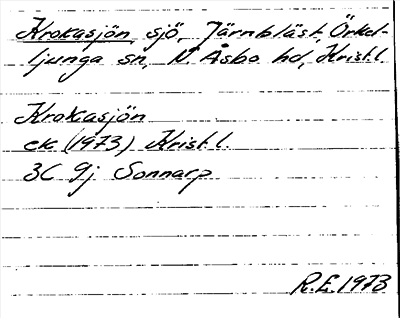 Krokasjön, sjö, Järnbläst, Örkel-
ljunga sn, N. Åsbo hd, Krist. l.
Krokasjön
ek (1973) Krist. l.
3C 9j Sonnarp
R.E. 1973